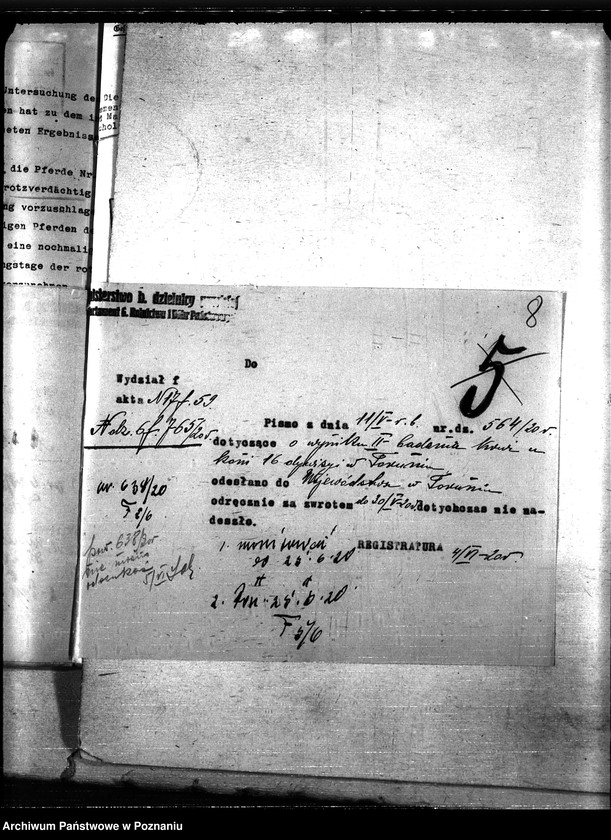 Untersuchung de
en hat zu dem i
eten Ergebnis
die Pferde Nr
rotzverdächtig
ng vorzuschlag
igen Pferden d
eine nochmali
ngstage der ro
8
5
nisterstwo b. dzielnicy pruskiej
Do
Wydział f
akta N 17 f. 59
N dz. 6 f 765/20 r.
Pismo z dnia 11/V r.b. nr.ds. 564/20 r.
dotyczące o wyniku II badania krwi u
koni 16 dywizji w Toruniu
odesłano do Województwa w Toruniu
odręcznie za zwrotem do 30/V 20 r dotychczas nie na-
deszło.
nr. 638/20
8/6
REGISTRATURA 4/VI 20 r.
1. monitować
do 25.6.20
2. Trn 25.6.20
5/6
Archiwum Państwowe w Poznaniu